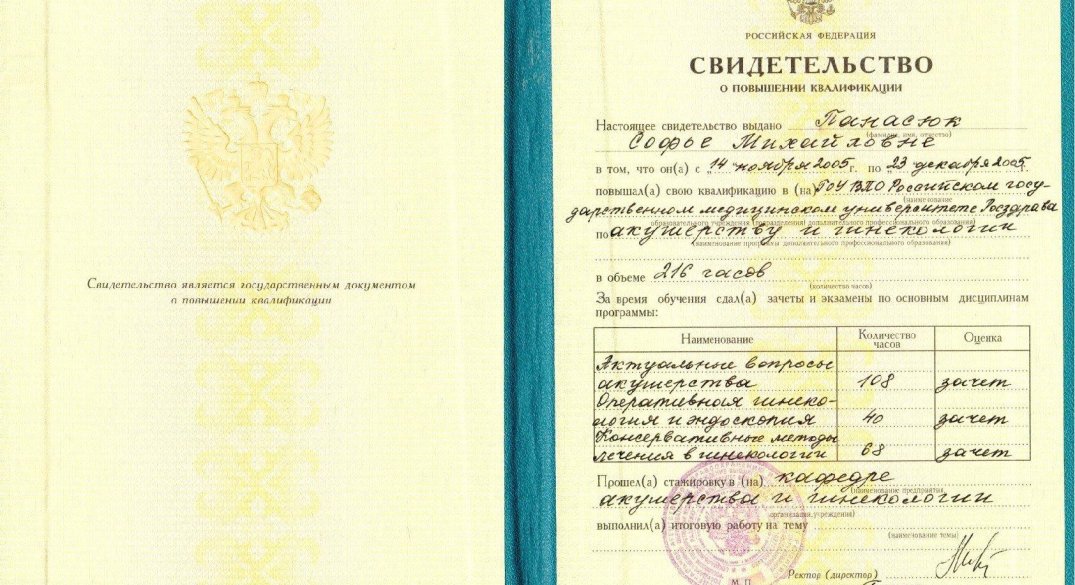 Свидетельство является государственным документом
о повышении квалификации
РОССИЙСКАЯ ФЕДЕРАЦИЯ
СВИДЕТЕЛЬСТВО
О ПОВЫШЕНИИ КВАЛИФИКАЦИИ
Настоящее свидетельство выдано Панасюк
(фамилия, имя, отчество)
Софье Михайловне
в том, что он(а) с „14" ноября 2005 г. по „23" декабря 2005 г.
повышал(а) свою квалификацию в (на) ГОУ ВПО Российском госу-
(наименование
дарственном медицинском университете Росздрава
образовательного учреждения (подразделения) дополнительного профессионального образования)
по акушерству и гинекологии
(наименование программы дополнительного профессионального образования)
в объеме 216 часов
(количество часов)
За время обучения сдал(а) зачеты и экзамены по основным дисциплинам
программы:
Наименование Количество часов Оценка
Актуальные вопросы
акушерства 108 зачет
Оперативная гинеко-
логия и эндоскопия 40 зачет
Консервативные методы
лечения в гинекологии 68 зачет
Прошел(а) стажировку в (на) кафедре
(наименование предприятия,
акушерства и гинекологии
организации, учреждения)
выполнил(а) итоговую работу на тему
(наименование темы)
Ректор (директор)
М.П.